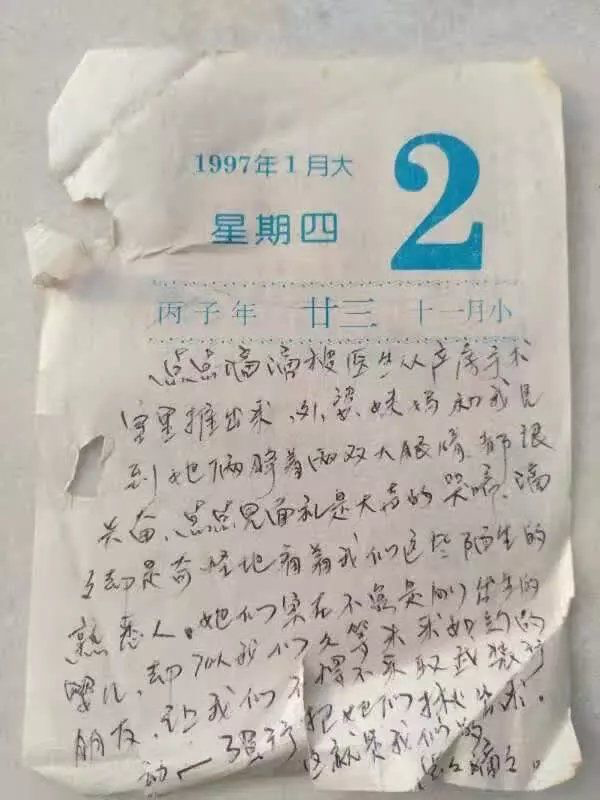 1997年1月大
2
星期四
丙子年 廿三 十一月小
点点滴滴被医生从产房手术
室里推出来,外婆、妹妈和我见
到她俩睁着两双大眼睛,都很
兴奋,点点见面礼是大声的哭啼,滴
滴却是奇怪地看着我们这些陌生的
熟悉人。她们实在不像是刚出生的
婴儿,却似我们久等未来如约的
朋友,让我们不得不采取武装行
动——强行把她们揪出来。
这就是我们的
点点滴滴。